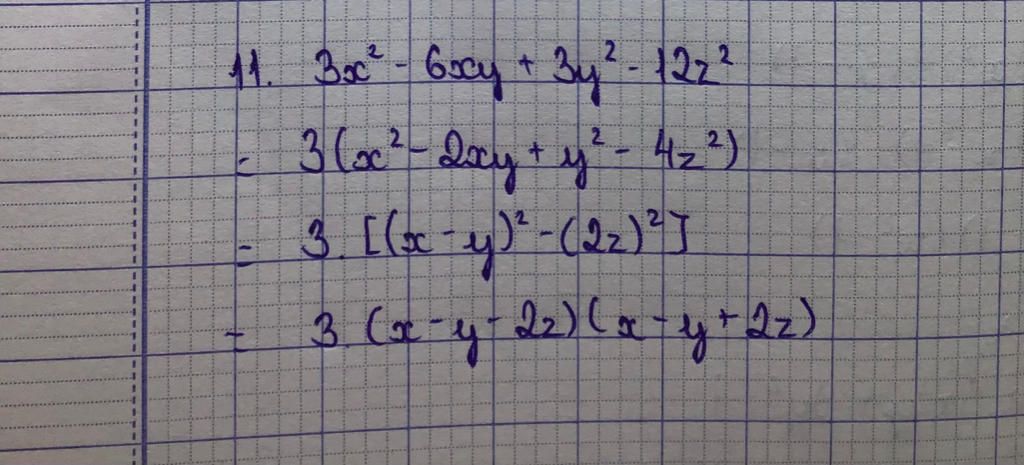 11. 3x² - 6xy + 3y² - 12z²
= 3(x² - 2xy + y² - 4z²)
= 3. [(x - y)² - (2z)²]
= 3. (x - y - 2z)(x - y + 2z)